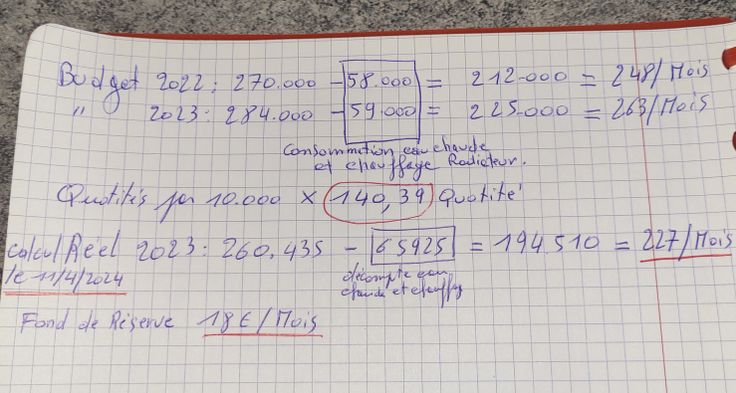 Budget 2022 : 270.000 - 58.000 = 212.000 = 248/Mois
" 2023 : 284.000 - 59.000 = 225.000 = 263/Mois
Consommation eau chaude
et chauffage Radiateur.
Quotités par 10.000 x 140,39 Quotité
Calcul Réel 2023 : 260.435 - 65925 = 194.510 = 227/Mois
le 11/4/2024
décompte eau
chaude et chauffage
Fond de Réserve 18€/Mois